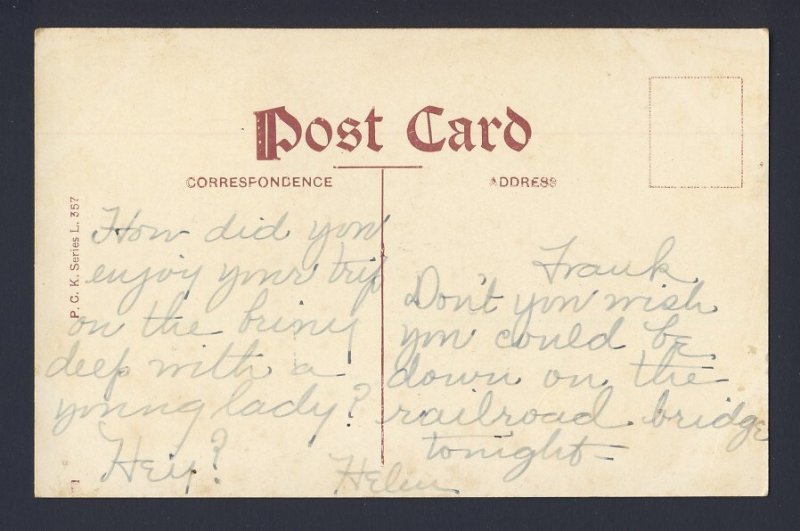 Post Card
CORRESPONDENCE
ADDRESS
P. C. K. Series L. 357
How did you
enjoy your trip
on the briny
deep with a
young lady?
Hey?
Helen
Frank
Don't you wish
you could be
down on the
railroad bridge
tonight–